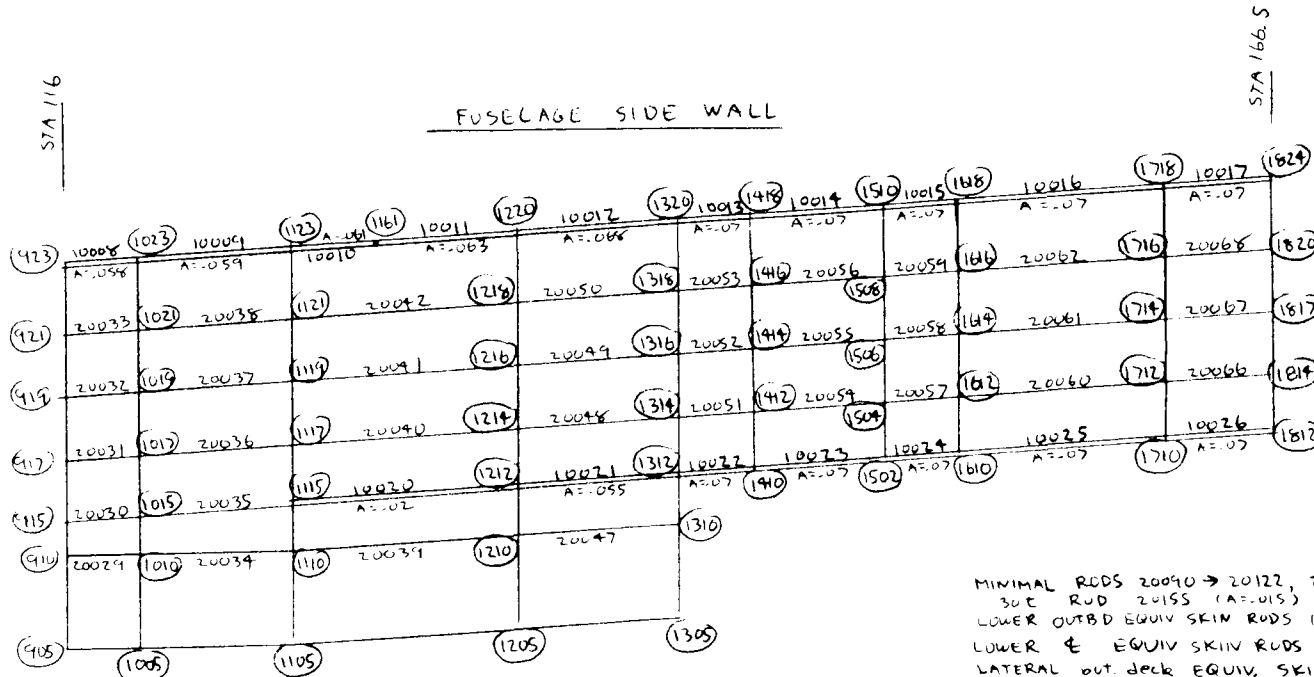 STA 116
STA 166.5
FUSELAGE SIDE WALL
923 10008 1023 10009 1123 A=.061 1161 10011 1220 10012 1320 10013 1418 10014 1510 10015 1618 10016 1718 10017 1824
A=.058 A=.059 10010 A=.063 A=.066 A=.07 A=.07 A=.07 A=.07 A=.07
921 20033 1021 20038 1121 20042 1218 20050 1318 20053 1416 20056 1508 20059 1616 20062 1716 20068 1820
919 20032 1019 20037 1119 20041 1216 20049 1316 20052 1414 20055 1506 20058 1614 20061 1714 20067 1817
917 20031 1017 20036 1117 20040 1214 20048 1314 20051 1412 20054 1504 20057 1612 20060 1712 20066 1814
915 20030 1015 20035 1115 10020 1212 10021 1312 10022 1410 10023 1502 10024 1610 10025 1710 10026 1812
A=.02 A=.055 A=.07 A=.07 A=.07 A=.07 A=.07
910 20029 1010 20034 1110 20039 1210 20047 1310
905 1005 1105 1205 1305
MINIMAL RODS 20090 → 20122,
ROD 20155 (A=.015)
LOWER OUTBD EQUIV SKIN RODS
LOWER ℄ EQUIV SKIN RODS
LATERAL out. deck EQUIV. SKI